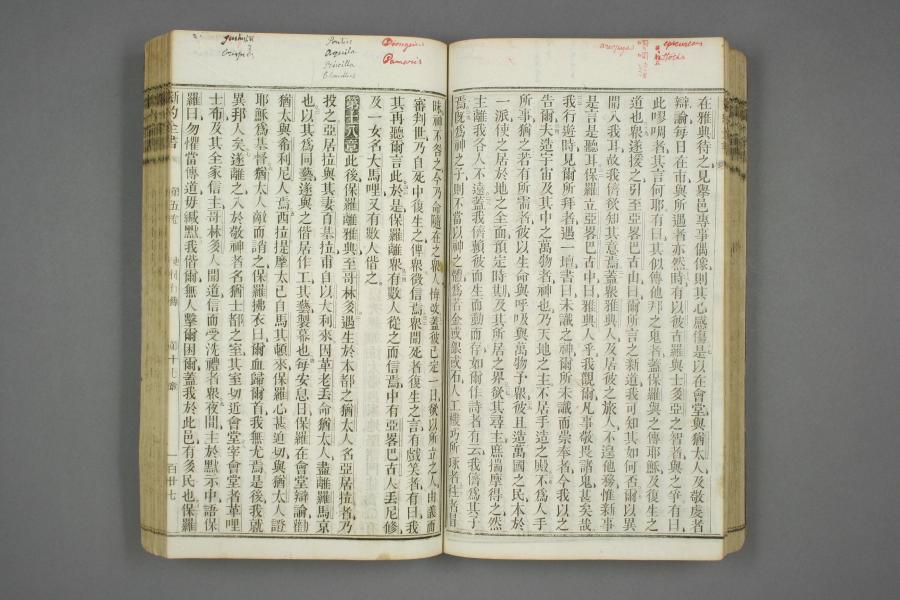 areopagus
epicureans
Stoics
在雅典待之見舉邑專事偶像則其心感傷是以在會堂與猶太人及敬虔者
辯論每日在市與所遇者亦然時有以彼古羅與士多亞之智者與之爭有曰
此嘐啁者其言何耶有曰其似傳他邦之鬼者蓋保羅與之傳耶穌及復生之
道也衆遂援之引至亞畧巴古山曰爾所言之新道我可知其如何否爾以異
聞入我耳故我儕欲知其意焉蓋衆雅典人及居彼之旅人不遑他務惟新事
是言是聽耳保羅立亞畧巴古中曰雅典人乎我觀爾凡事敬畏諸鬼甚矣哉
我行遊時見爾所拜者遇一壇書曰未識之神爾所未識而崇奉者今我以之
告爾夫造宇宙及其中之萬物者神也乃天地之主不居手造之殿不爲人手
所事猶之若有所需者彼以生命與呼吸與萬物予衆彼且造萬國之民本於
一派使之居於地之全面預定時期及其所居之界欲其尋主庶揣摩得之然
主離我各人不遠蓋我儕賴彼而生而動而存如爾作詩者有云我儕爲其子
焉旣爲神之子則不當以神之體爲若金或銀或石人工機巧所琢者往者冒
Dionysius
Damaris
Pontus
Aquila
Priscilla
Claudius
Justus
Crispus
昧神不咎之今乃命隨在之衆人悔改蓋彼已定一日欲以所立之人由義而
審判世乃自死中復生之俾衆徵信焉衆聞死者復生之言有戲笑者有曰我
其再聽爾言此於是保羅離衆有數人從之而信焉中有亞畧巴古人丟尼修
及一女名大馬哩又有數人偕之
第十八章此後保羅離雅典至哥林多遇生於本都之猶太人名亞居拉者乃
投之亞居拉與其妻百基拉甫自以大利來因革老丟命猶太人盡離羅馬京
也以其爲同藝遂與之偕居作工其藝製幕也每安息日保羅在會堂辯論勸
猶太與希利尼人焉西拉提摩太已自馬其頓來保羅心甚迫切與猶太人證
耶穌爲基督猶太人敵而誚之保羅拂衣曰爾血歸爾首我無尤焉是後我就
異邦人矣遂離之入於敬神者名猶士都之室其室切近會堂宰會堂者革哩
士布及其全家信主哥林多人聞道信而受洗禮者衆夜間主於默示中語保
羅曰勿懼當傳道毋緘默我偕爾無人擊爾困爾蓋我於此邑有多民也保羅
新約全書
第五卷
使徒行傳
第十八章
一百廿七